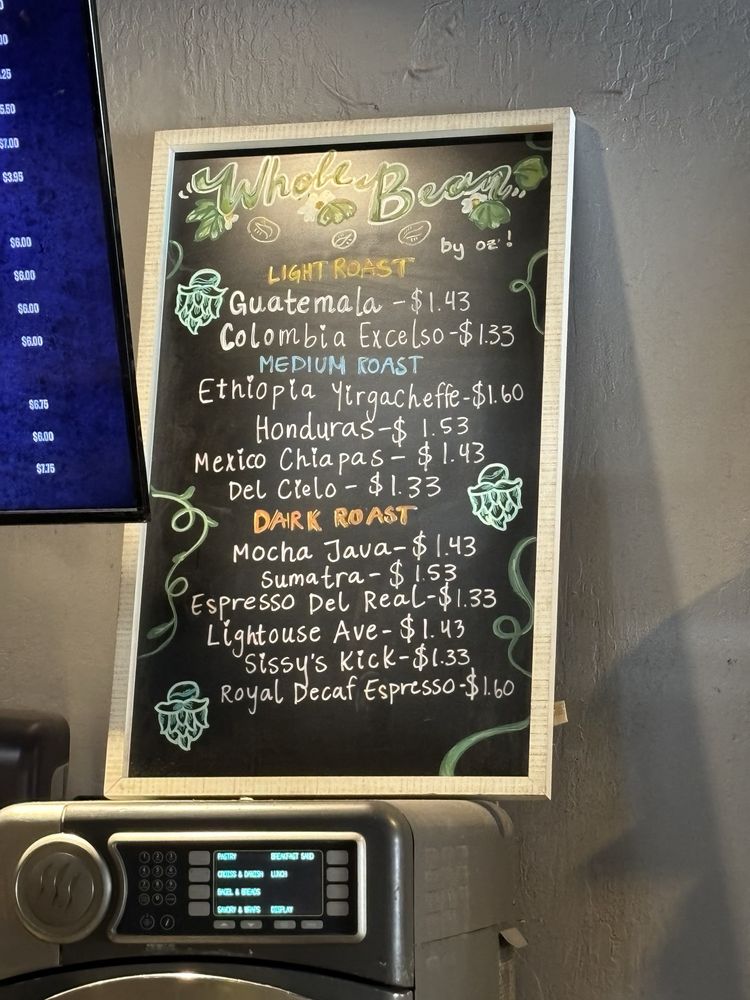 .25
5.50
$7.00
$3.95
$6.00
$6.00
$6.00
$6.00
$6.75
$6.00
$7.75
Whole Bean
by oz!
LIGHT ROAST
Guatemala - $1.43
Colombia Excelso - $1.33
MEDIUM ROAST
Ethiopia Yirgacheffe - $1.60
Honduras - $1.53
Mexico Chiapas - $1.43
Del Cielo - $1.33
DARK ROAST
Mocha Java - $1.43
Sumatra - $1.53
Espresso Del Real - $1.33
Lightouse Ave - $1.43
Sissy's Kick - $1.33
Royal Decaf Espresso - $1.60
PASTRY BREAKFAST SAND
LUNCH
BAGEL & BREADS
SAVORY & WRAPS DISPLAY